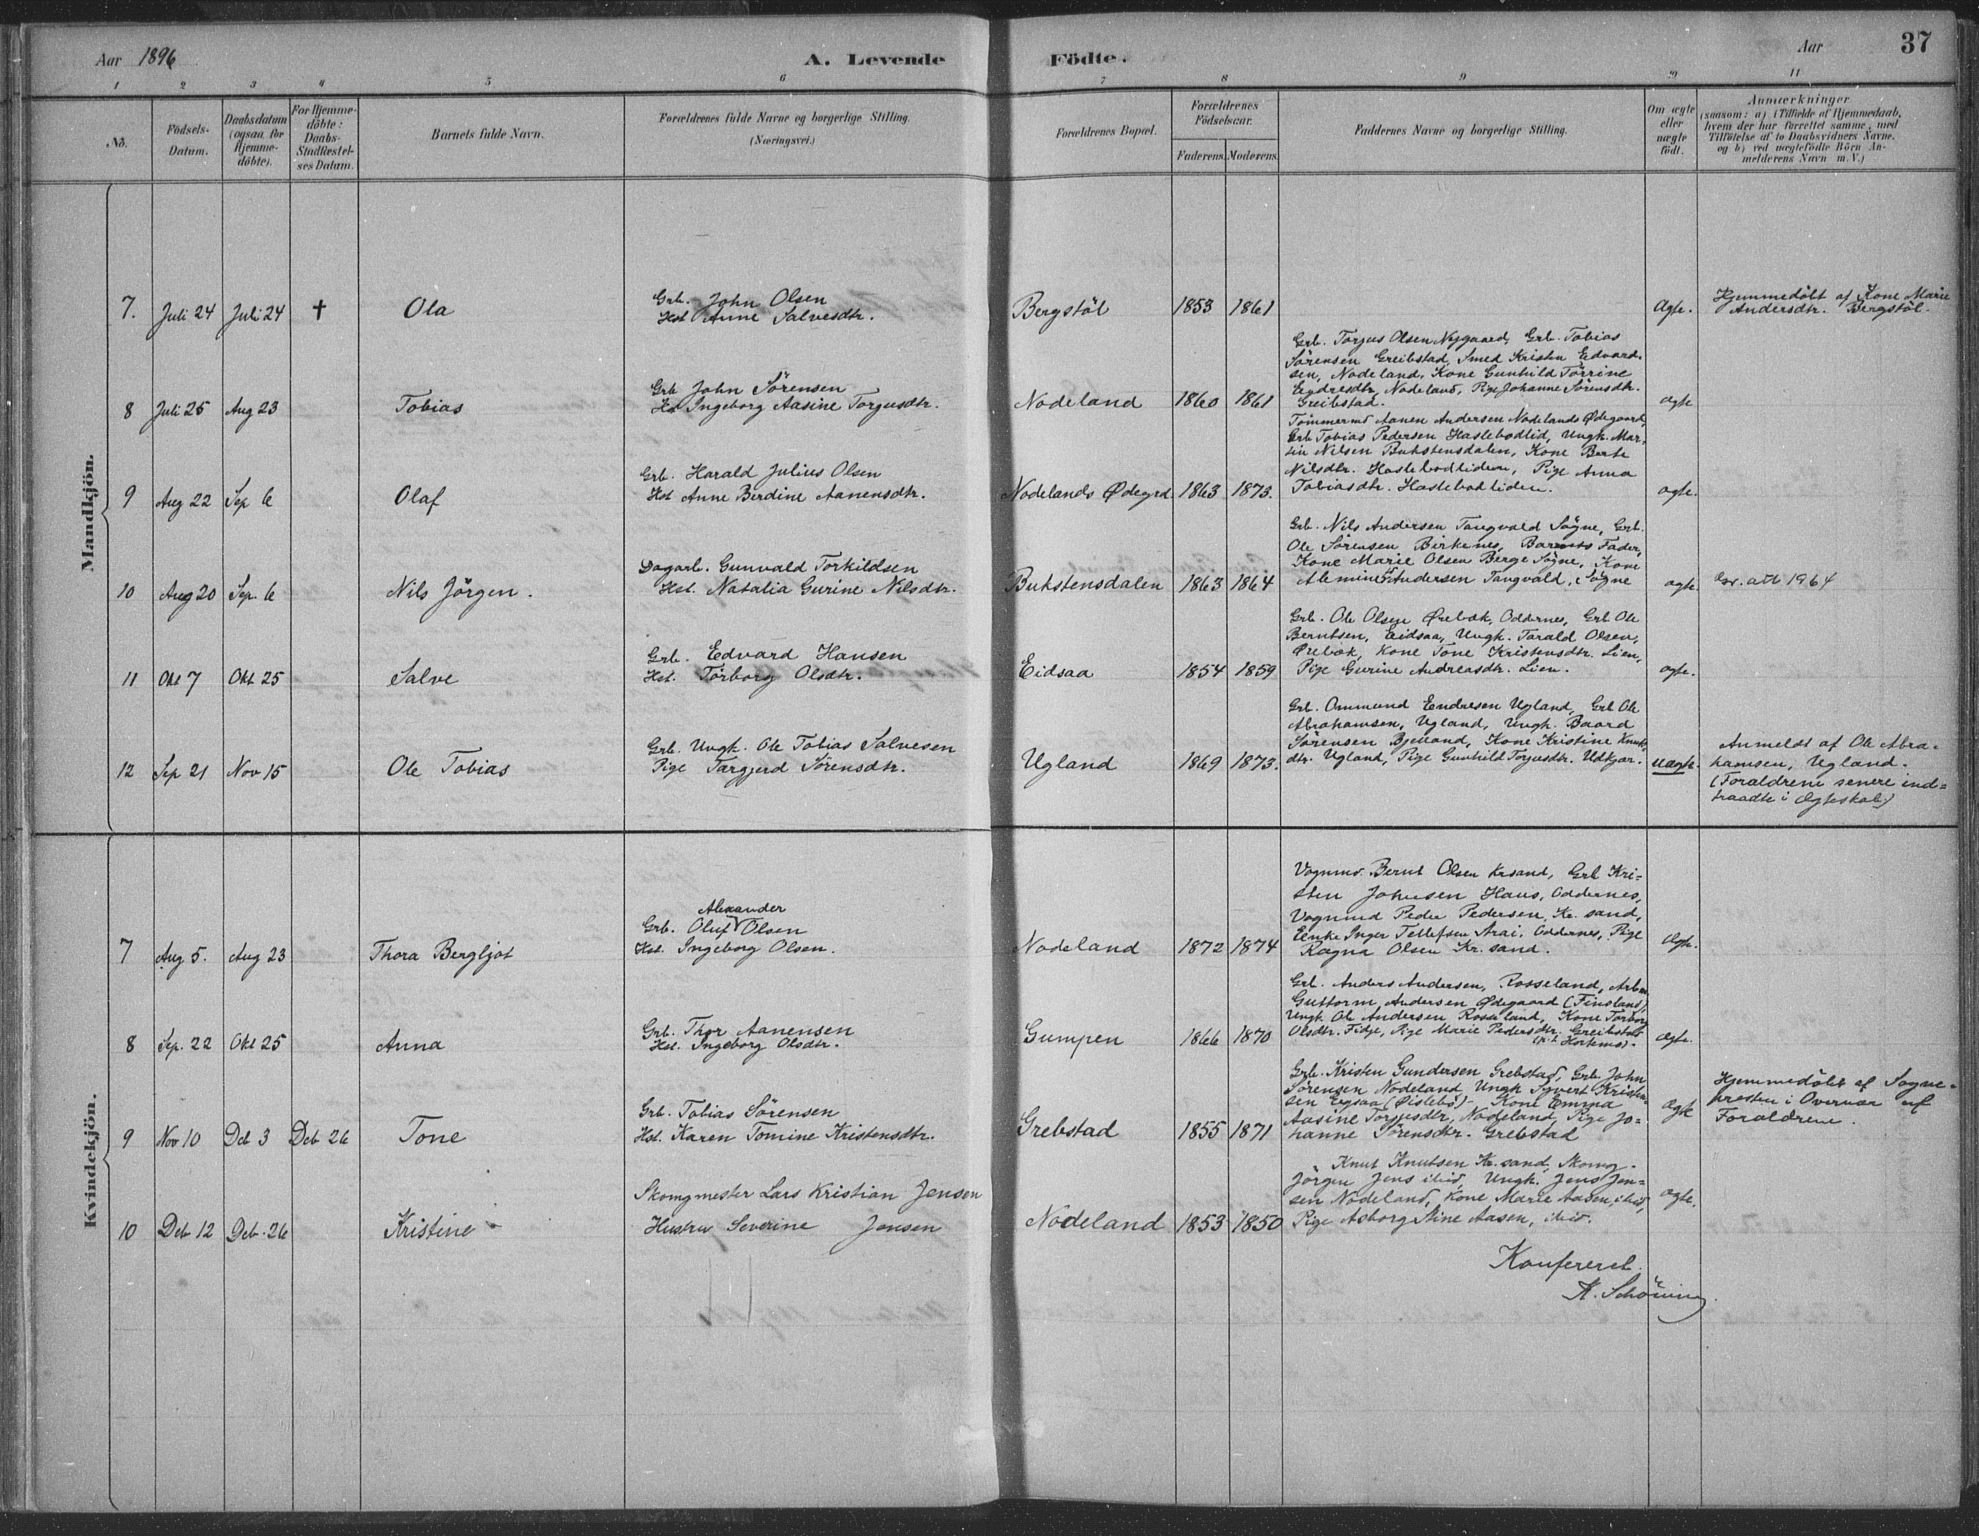 Aar 1896
A. Levende
Födte.
Aar
37
1 2 3 4 5 6 7 8 9 10 11
No.
Födsels-
Datum.
Daabsdatum
(ogsaa for
Hjemme-
döbte).
For Hjemme-
döbte:
Daabs-
Stadfæstel-
ses Datum.
Barnets fulde Navn.
Forældrenes fulde Navne og borgerlige Stilling.
(Næringsvei.)
Forældrenes Bopæl.
Forældrenes
Födselsaar.
Faderens. Moderens.
Faddernes Navne og borgerlige Stilling.
Om ægte
eller
uægte
födt.
Anmærkninger
(saasom: a) i Tilfælde af Hjemmedaab,
hvem der har forrettet samme, med
Tilföielse af to Daabsvidners Navne,
og b) ved uægtefödte Börn An-
melderens Navn m. V.)
Mandkjön.
7. Juli 24 Juli 24 † Ola
Grb. John Olsen
Hst Anne Salvesdtr.
Bergstöl 1853 1861
Ægte.
Hjemmedöbt af Kone Marie
Andersdtr. Bergstöl.
8 Juli 25 Aug 23 Tobias
Grb John Sörensen
Hs Ingeborg Aasine Torgusdtr.
Nodeland 1860 1861
Grb. Torjus Olsen Nygaard, Grb. Tobias
Sörensen Greibstad, Smed Kristen Edvard-
sen, Nodeland, Kone Gunhild Torrine
Endresdtr, Nodeland, Pige Johanne Sörensdtr.
Greibstad.
ægte
9 Aug 22 Sep 6 Olaf
Grb. Harald Julius Olsen
Hst Anne Berdine Aanensdtr.
Nodelands Ødegrd 1863 1873.
Tömmermd Aanen Andersen Nodelands Ødegaard,
Grb Tobias Pedersen Haslebodlid, Ungk. Mar-
tin Nilsen Bukstensdalen, Kone Berte
Nilsdtr. Haslebodliden, Pige Anna
Tobiasdtr. Haslebodliden.
ægte.
10 Aug 20 Sep. 6 Nils Jörgen.
Dagarb. Gunvald Torkildsen
Hst. Natalia Gurine Nilsdtr.
Bukstensdalen 1863 1864
Grb. Nils Andersen Tangvald Sögne, Grb.
Ole Sörensen Birkenes, Barnets Fader,
Kone Marie Olsen Berge Sögne, Kone
Andersen Tangvald, Sögne
ægte.
att 1964
11 Okt 7 Okt 25 Salve
Grb. Edvard Hansen
Hst. Torborg Olsdtr.
Eidsaa 1854 1859
Grb. Ole Olsen Ørebæk, Oddernes, Grb Ole
Berntsen, Eidsaa, Ungk. Tarald Olsen,
Ørebæk, Kone Tone Kristensdtr. Lien,
Pige Gurine Andreasdtr. Lien.
ægte.
12 Sep 21 Nov 15 Ole Tobias
Grb. Ungk. Ole Tobias Salvesen
Pige Targjerd Sörensdtr.
Ugland 1869 1873.
Grb. Ommund Endresen Ugland, Grb Ole
Abrahamsen, Ugland, Ungk. Baard
Sörensen Bjelland, Kone Kristine Knuts-
dtr. Ugland, Pige Gunhild Torjusdtr. Udkjær.
uægte.
Anmeldt af Ole Abra-
hamsen, Ugland.
(Forældrene senere ind-
traadte i Ægteskab)
Kvindekjön.
7 Aug 5. Aug 23 Thora Bergljot
Alexander
Grb. Oluf Olsen
Hst. Ingeborg Olsen.
Nodeland 1872 1874
Vognmd. Bernt Olsen Krsand, Grb Kri-
sten Johnsen Haus, Oddernes,
Vognmd Peder Pedersen, Kr. sand,
Enke Inger Tellefsen Arai, Oddernes, Pige
Ragna Olsen Kr. sand.
Ægte.
8 Sep. 22 Okt 25 Anna
Grb. Thor Aanensen
Hst. Ingeborg Olsdtr.
Gumpen 1866 1870
Grb. Anders Andersen, Rosseland, Arb
Guttorm Andersen Ødegaard (Finsland),
Ungk. Ole Andersen Rosseland, Kone Torborg
Olsdtr. Fidje, Pige Marie Pedersdtr. Greibstad
Hortemo).
ægte.
9 Nov 10 Dcb 3 Dcb 26 Tone
Grb. Tobias Sörensen
Hst. Karen Tomine Kristensdtr.
Grebstad 1855 1871
Grb. Kristen Gundersen Grebstad, Grb. John
Sörensen Nodeland, Ungk Syvert Kristen-
sen Eigsaa (Øislebö) Kone Emma
Aasine Torjusdtr, Nodeland, Pige Jo-
hanne Sörensdtr. Grebstad
Ægte
Hjemmedöbt af Sogne-
presten i Overvær af
Forældrene.
10 Dcb 12 Dcb. 26 Kristine
Skomgmester Lars Kristian Jensen
Hustru Severine Jensen
Nodeland 1853 1850
Knut Knutsen Kr. sand, Skomg.
Jörgen Jens ibid, Ungk. Jens Jen-
sen Nodeland, Kone Marie Aasen, ibid,
Pige Asborg Stine Aasen, ibid.
ægte.
Konfereret.
K. Schöning